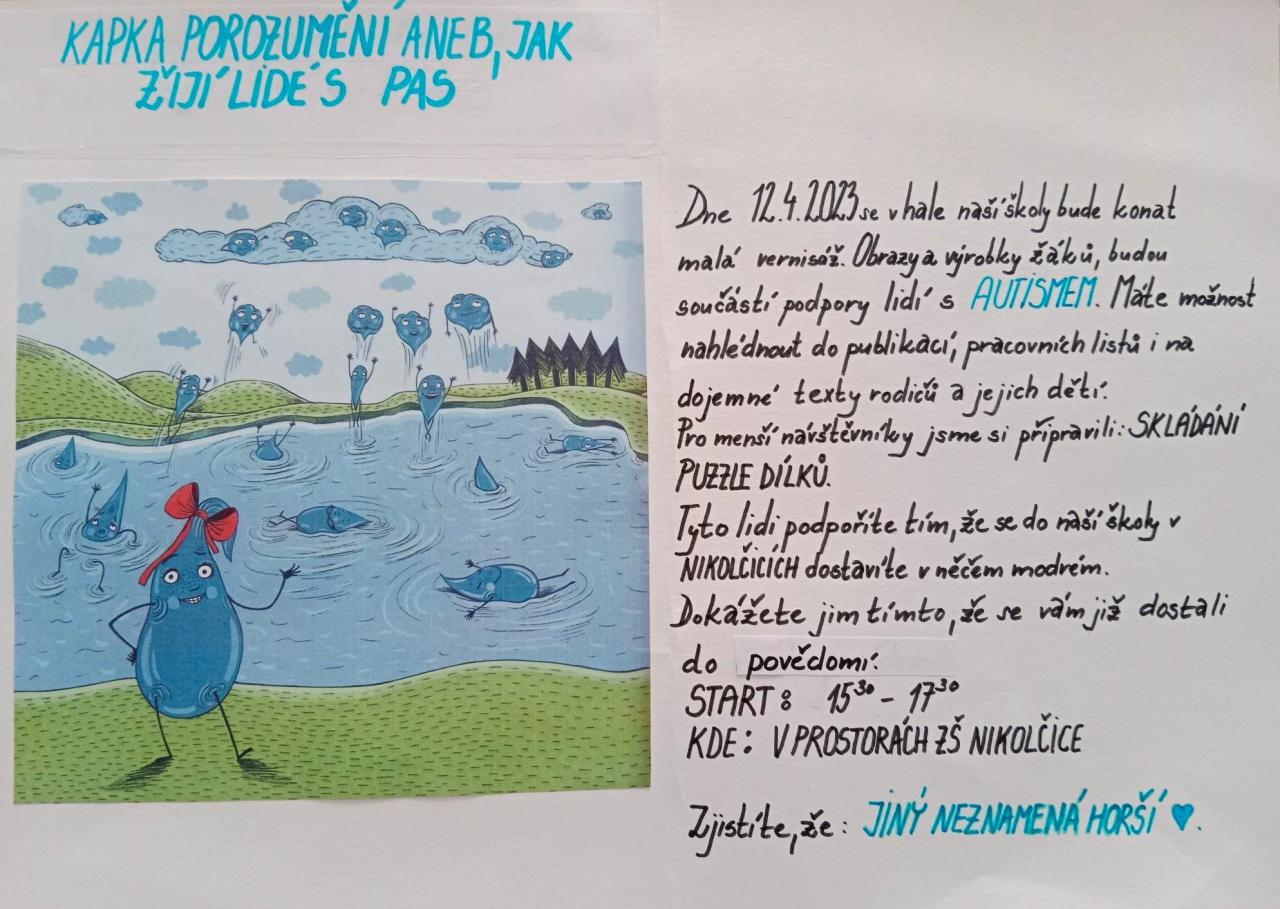 KAPKA POROZUMĚNÍ ANEB, JAK
ŽIJÍ LIDÉ S PAS
Dne 12.4.2023 se v hale naší školy bude konat
malá vernisáž. Obrazy a výrobky žáků, budou
součástí podpory lidí s AUTISMEM. Máte možnost
nahlédnout do publikací, pracovních listů i na
dojemné texty rodičů a jejich dětí.
Pro menší návštěvníky jsme si připravili: SKLÁDÁNÍ
PUZZLE DÍLKŮ.
Tyto lidi podpoříte tím, že se do naší školy v
NIKOLČICÍCH dostavíte v něčem modrém.
Dokážete jim tímto, že se vám již dostali
do povědomí.
START: 15³⁰ - 17³⁰
KDE: V PROSTORÁCH ZŠ NIKOLČICE
Zjistíte, že: JINÝ NEZNAMENÁ HORŠÍ ♥.